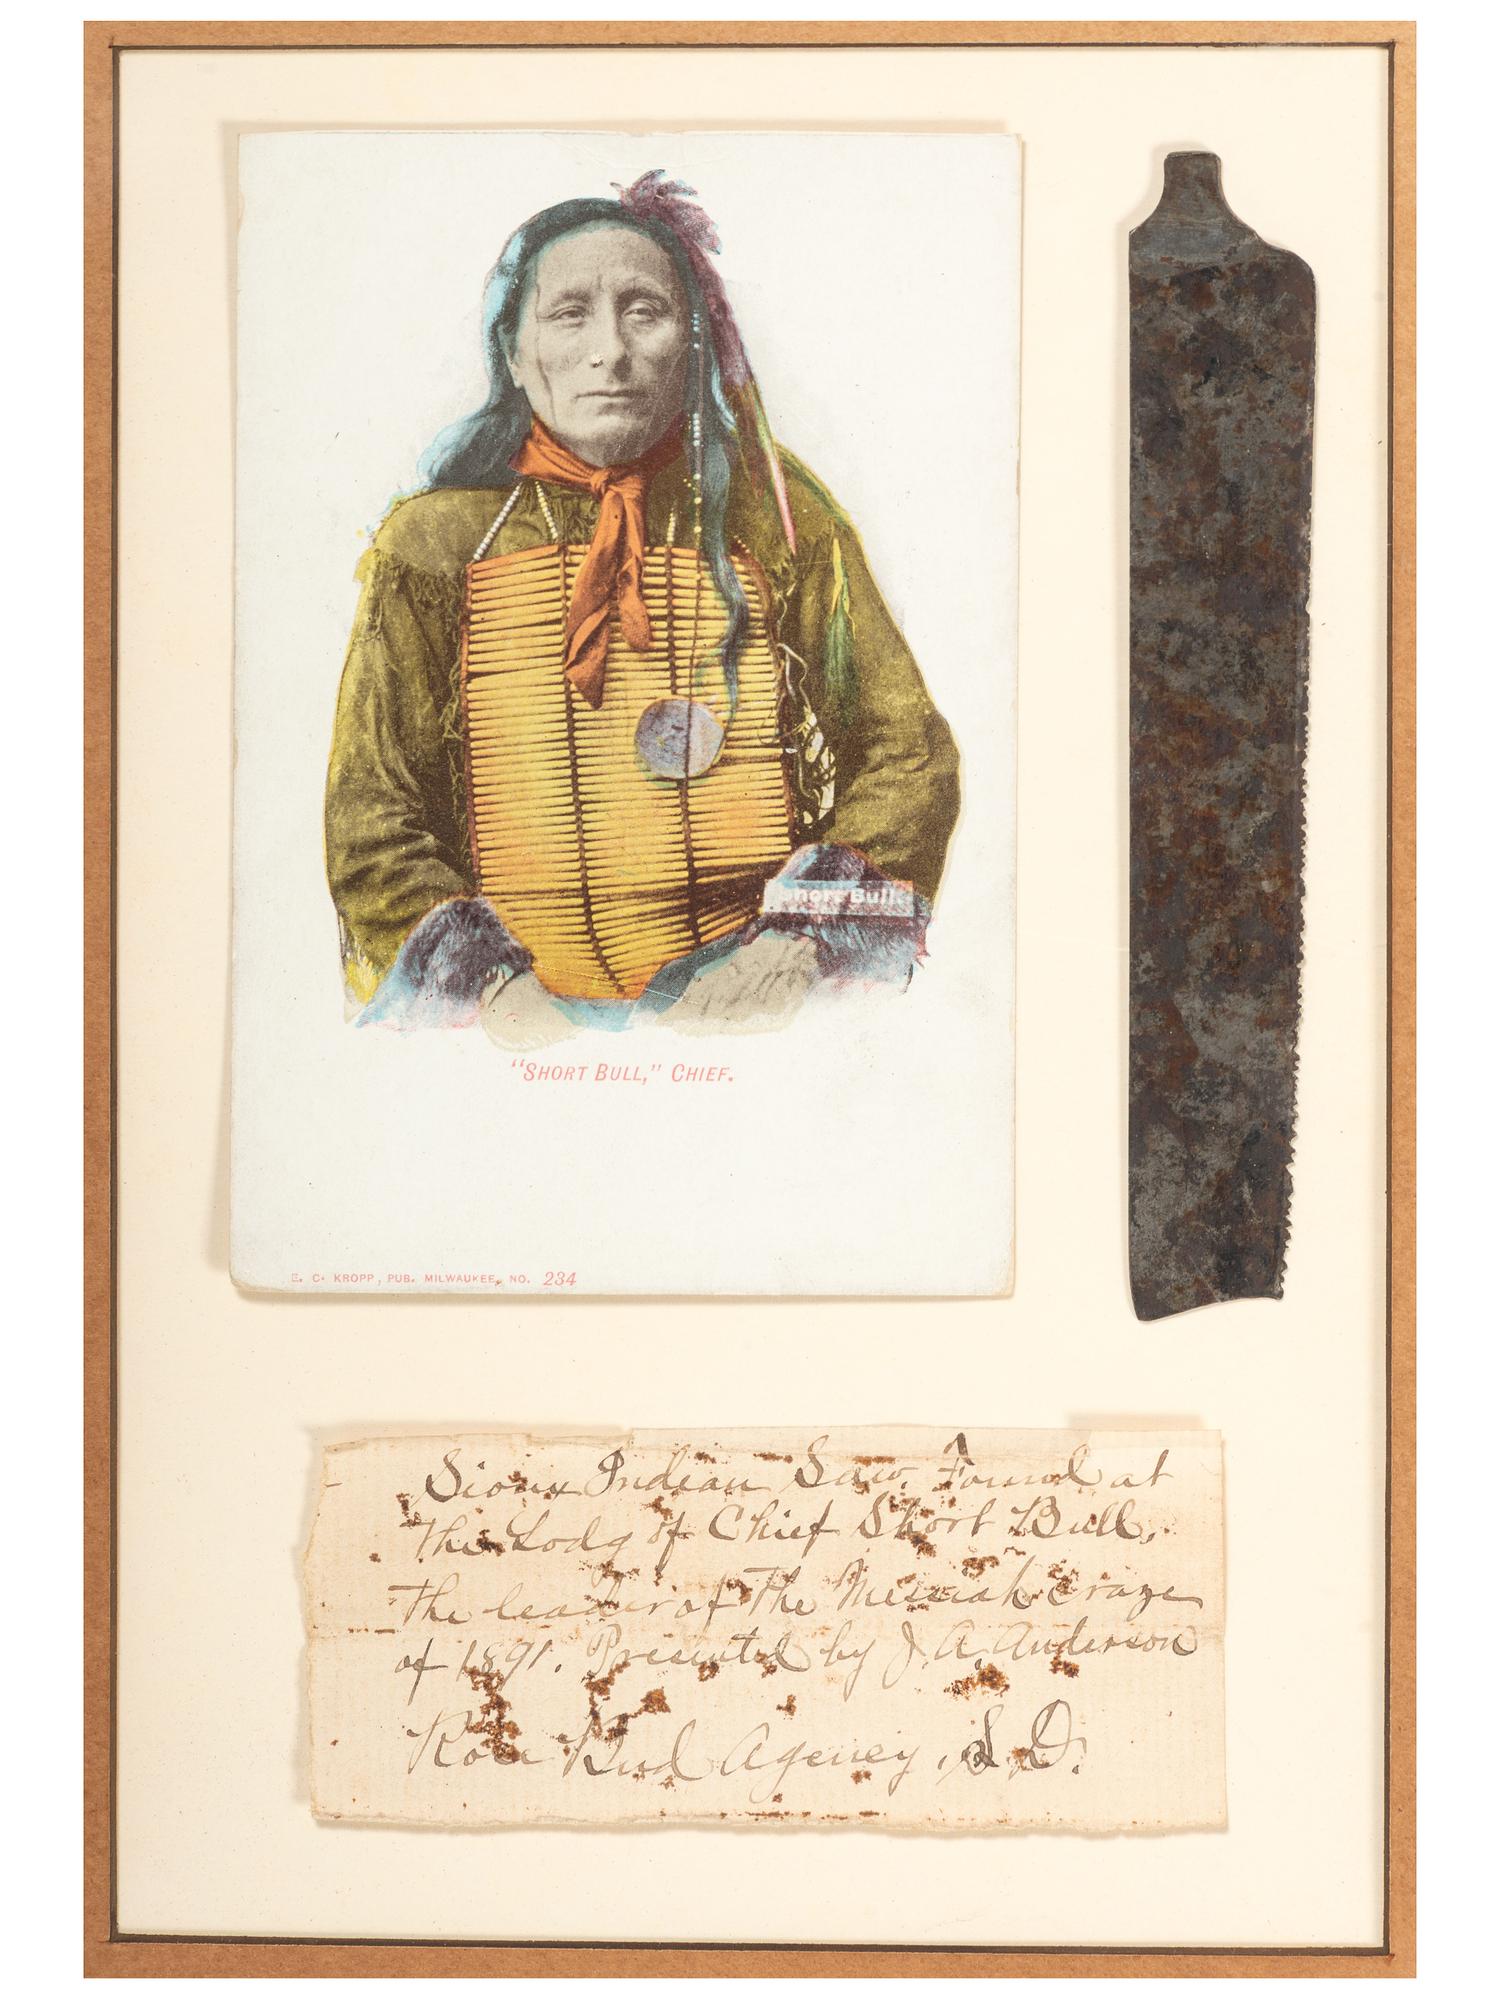 Short Bull.
"SHORT BULL," CHIEF.
E. C. KROPP, PUB. MILWAUKEE, NO. 234
Sioux Indian Saw. Found at
the Lodg of Chief Short Bull,
The leader of The Messiah craze
of 1891. Presented by J. A. Anderson
Rose Bud Agency, S. D.